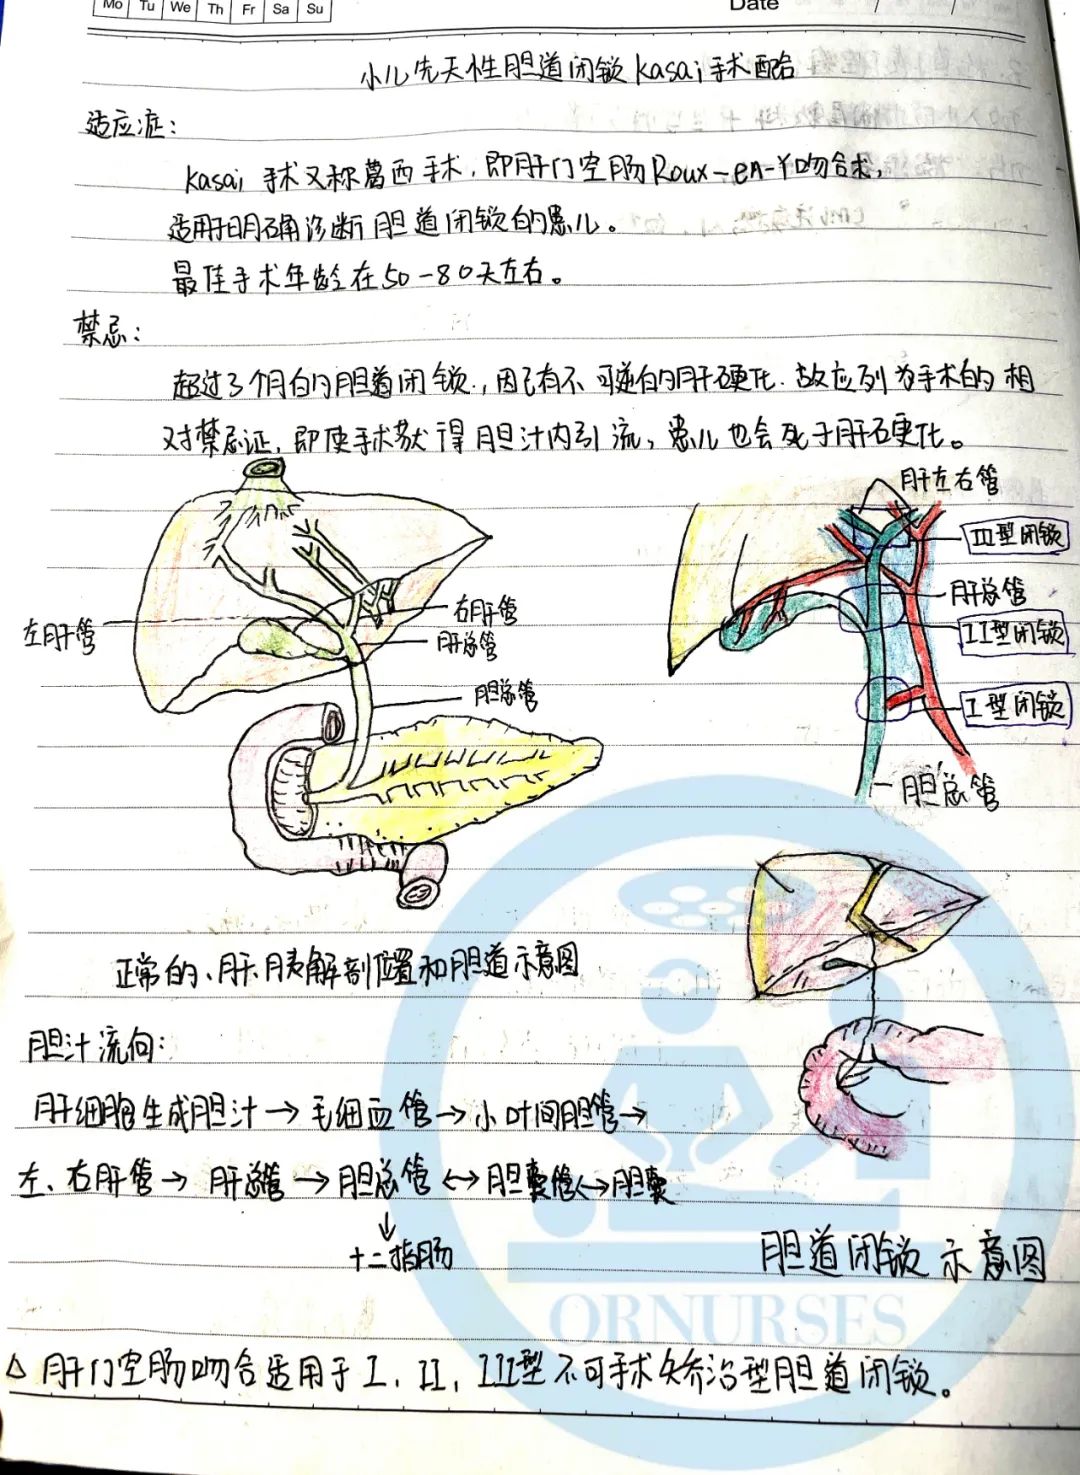 Mo Tu We Th Fr Sa Su
Date / /
小儿先天性胆道闭锁Kasai手术配合
适应症：
Kasai 手术又称葛西手术，即肝门空肠Roux-en-Y吻合术，
适用于明确诊断胆道闭锁的患儿。
最佳手术年龄在50-80天左右。
禁忌：
超过3个月的胆道闭锁，因已有不可逆的肝硬化，故应列为手术的相
对禁忌证，即使手术获得胆汁内引流，患儿也会死于肝硬化。
左肝管
右肝管
肝总管
胆总管
肝左右管
III型闭锁
肝总管
II型闭锁
I型闭锁
胆总管
正常的、肝、胰解剖位置和胆道示意图
胆汁流向：
肝细胞生成胆汁→毛细血管→小叶间胆管→
左、右肝管→ 肝总管→胆总管↔胆囊管↔胆囊
↓
十二指肠
胆道闭锁示意图
ORNURSES
△ 肝门空肠吻合适用于I，II，III型不可手术矫治型胆道闭锁。